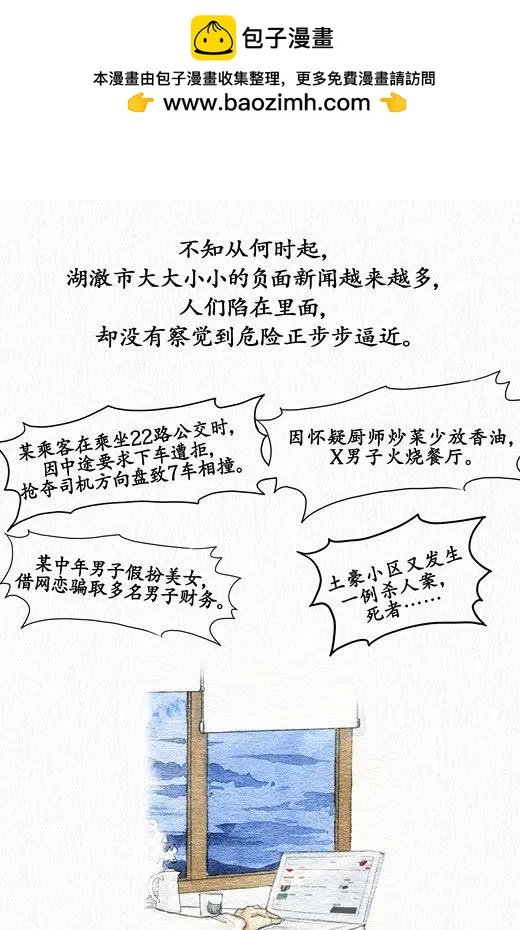 包子漫畫
本漫畫由包子漫畫收集整理，更多免費漫畫請訪問
👉 www.baozimh.com 👈
不知从何时起，
湖澈市大大小小的负面新闻越来越多，
人们陷在里面，
却没有察觉到危险正步步逼近。
某乘客在乘坐22路公交时，
因中途要求下车遭拒，
抢夺司机方向盘致7车相撞。
因怀疑厨师炒菜少放香油，
X男子火烧餐厅。
某中年男子假扮美女，
借网恋骗取多名男子财务。
土豪小区又发生
一例杀人案，
死者……